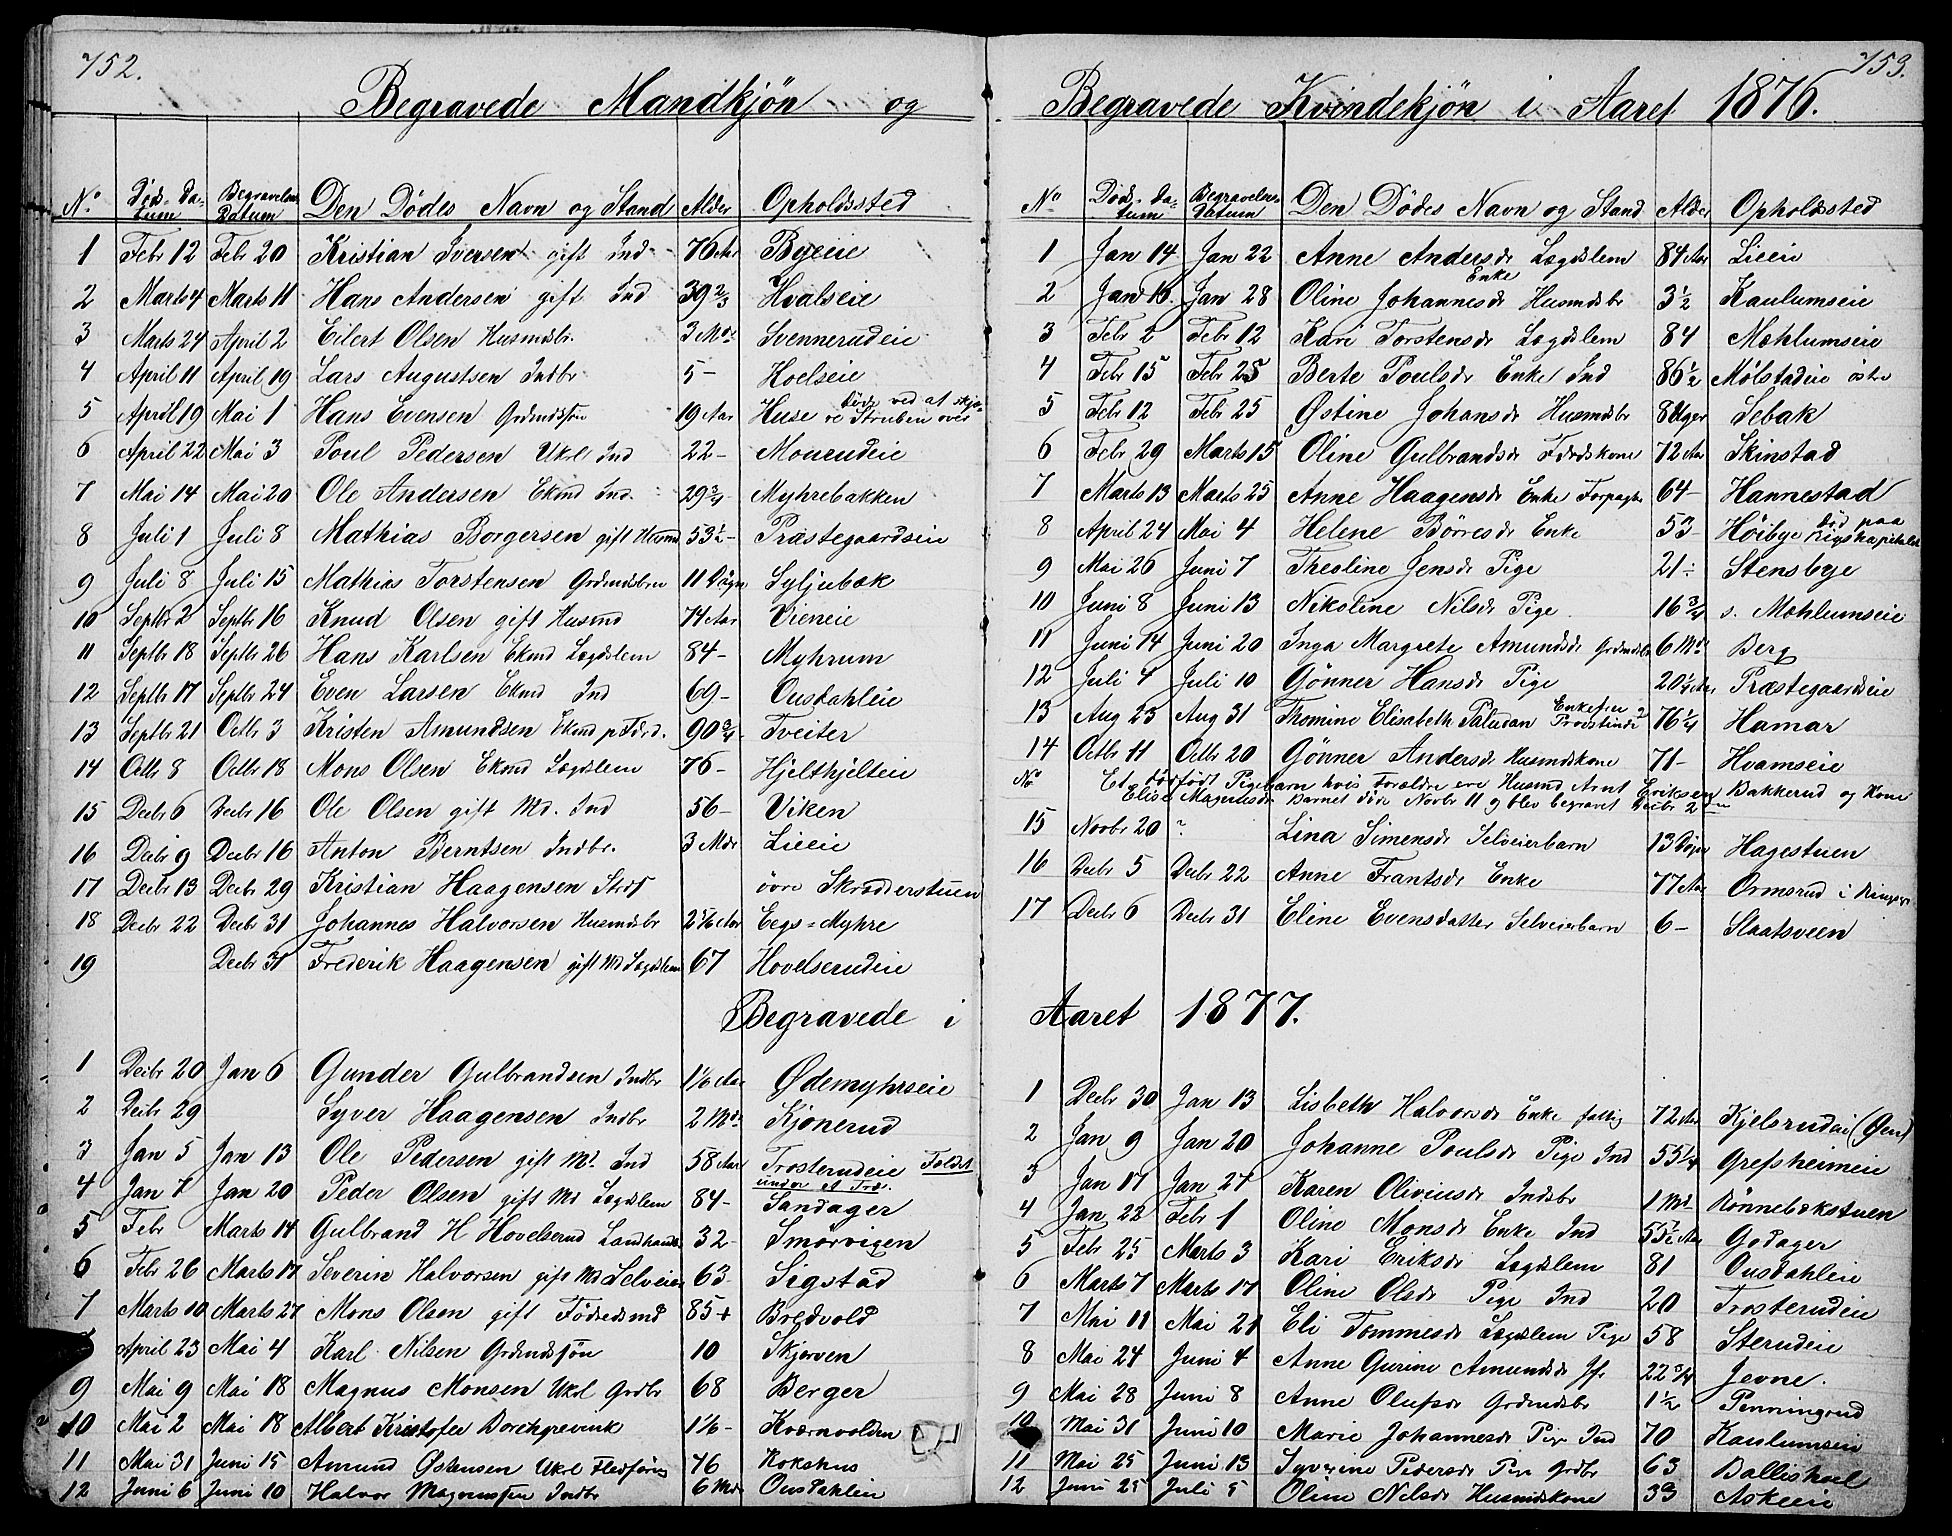 752.
Begravede Mandkjøn og
No Døds-Da-tum Begravelses Datum Den Dødes Navn og Stand Alder Opholdssted
1 Febr 12 Febr 20 Kristian Iversen gift Ind 76 Aar Byeie
2 Marts 4 Marts 11 Hans Andersen gift Ind 39 2/3 Hvalseie
3 Marts 24 April 2 Eilert Olsen Husmdsbr. 3 Mdr Svennerudeie
4 April 11 April 19 Lars Augustsen Indbr 5 - Hoelseie
5 April 19 Mai 1 Hans Evensen Grdmdssøn 19 Aar Huse døde ved at skjæ-re Struben over
6 April 22 Mai 3 Poul Pedersen Ukrl Ind 22 - Monerudeie
7 Mai 14 Mai 20 Ole Andersen Ekmd Ind. 29 3/4 - Myhrebakken
8 Juli 1 Juli 8 Mathias Borgersen gift Husmd 53 1/2 - Præstegaardseie
9 Juli 8 Juli 15 Mathias Torstensen Grdmdsbrn 11 Døgn Syljubæk
10 Septbr 2 Septbr 16 Knud Olsen gift Husmd 74 Aar Vieneie
11 Septbr 18 Septbr 26 Hans Karlsen Ekmd Lægdslem 84 - Myhrum
12 Septbr 17 Septbr 24 Even Larsen Ekmd Ind 69 - Ousdahleie
13 Septbr 21 Octbr 3 Kristen Amundsen Ekmd p. Førd. 90 3/4 - Tveiter
14 Octbr 8 Octbr 18 Mons Olsen Ekmd Lægdslem 76 - Hjelthjelteie
15 Decbr 6 Decbr 16 Ole Olsen gift Md. Ind 56 - Viken
16 Decbr 9 Decbr 16 Anton Berntsen Indbr. 3 Mdr Lieeie
17 Decbr 13 Decbr 29 Kristian Haagensen øvre Skrædderstuen
18 Decbr 22 Decbr 31 Johannes Halvorsen Husmdsbr 2 1/6 Aar Eegs=Myhre
19 Decbr 31 Frederik Haagensen gift Md Lægdslem 67 Hovelserudeie
Begravede i
1 Decbr 20 Jan 6 Gunder Gulbrandsen Indbr 1 1/6 Aar Ødemyhrseie
2 Decbr 29 Syver Haagensen Indbr 2 Mdr Kjonerud
3 Jan 5 Jan 13 Ole Pedersen gift Md. Ind 58 Aar Trosterudeie Faldt under et Træ.
4 Jan 7 Jan 20 Peder Olsen gift Md Lægdslem 84 - Sandager
5 Febr Marts 14 Gulbrand H Hovelsrud Landhandl 32 - Smørvigen
6 Febr 26 Marts 17 Severin Halvorsen gift Md Selveier 63 - Sigstad
7 Marts 10 Marts 27 Mons Olsen gift Føderdsmd 85 + Bredvold
April 23 Mai 4 Karl Nilsen Grdmdssøn 10 Skjerven
9 Mai 9 Mai 18 Magnus Monsen Ukrl Grdbr 68 Berger
10 Mai 2 Mai 18 Albert Kristofer Borchgrevink 1 1/6 - Kværnvolden
11 Mai 31 Juni 15 Amund Østensen Ukrl 76 Kokshus
12 Juni 6 Juni 10 Halvor Magnussen Indbr 6 Mdr Ousdahleie
753.
Begravede Kvindekjøn i Aaret 1876.
No Døds-Da-tum Begravelses Datum Den Dødes Navn og Stand Alder Opholdssted
1 Jan 14 Jan 22 Anne Andersdr Lægdslem Enke 84 Aar Lieeie
2 Jan 18 Jan 28 Oline Johannesdr Husmdsbr 3 1/2 Kaulumseie
3 Febr 2 Febr 12 Kari Torstensdr Lægdslem 84 Mæhlumseie
4 Febr 15 Febr 25 Berte Poulsdr Enke Ind 86 1/2 Mølstadeie østre
5 Febr 12 Febr 25 Østine Johansdr Husmdsbr 8 Uger Sebak
6 Febr 29 Marts 15 Oline Gulbrandsdr Førdskone 72 Aar Skinstad
7 Marts 13 Marts 25 Anne Haagensdr Enke Forpagter 64 - Hannestad
8 April 24 Mai 4 Helene Børresdr Enke 53 - Høibye død paa Rigshospitalet
9 Mai 26 Juni 7 Theoline Jensdr Pige 21 - Stensbye
10 Juni 8 Juni 13 Nikoline Nilsdr Pige 16 3/4 s. Mæhlumseie
11 Juni 14 Juni 20 Inga Margrete Amundsdr Grdmdsbr 6 Mdr Berg
12 Juli 4 Juli 10 Gønner Hansdr Pige 20 1/4 Aar Præstegaardseie
13 Aug 23 Aug 31 Thomine Elisabeth Paludan Enkefru Provstinde 76 1/4 Hamar
14 Octbr 11 Octbr 20 Gønner Andersdr Husmdskone 71 - Hvamseie
No Et dødfødt Pigebarn hvis Forældre ere Husmd Arnt Eriksen Bakkerud og Kone
Elise Magnusdr Barnet døde Novbr 11 og blev begravet Decbr 2den
15 Novbr 20 ? Lina Simensdr Selveierbarn 13 Døgn Hagestuen
16 Decbr 5 Decbr 22 Anne Frantsdr Enke 77 Aar Ormsrud i Ringsr
17 Decbr 6 Decbr 31 Eline Evensdatter Selveierbarn 6 - Slaatsveen
Aaret 1877.
1 Decbr 30 Jan 13 Lisbeth Halvorsdr Enke fattig 72 Aar Kjelsrudeie
2 Jan 9 Jan 20 Johanne Poulsdr Pige Ind 55 1/4 Grefsheimeie
3 Jan 17 Jan 27 Karen Oliviusdr Indsbr 1 Md Rønnebækstuen
4 Jan 22 Febr 1 Oline Monsdr Enke Ind 55 1/2 Aar Godager
5 Febr 25 Marts 3 Kari Eriksdr Lægdslem 81 Ousdahleie
6 Marts 7 Marts 17 Oline Olsdr Pige Ind 20 Trosterudeie
7 Mai 11 Mai 21 Eli Tommesdr Lægdslem Pige 58 Sterudeie
8 Mai 24 Juni 4 Anne Gurine Amundsdr Jfr 22 3/4 Jevne.
9 Mai 28 Juni 8 Anne Olufsdr Grdmdsbr 1 1/2 Penningrud
10 Mai 31 Juni 10 Marie Johannesdr Pige Ind 70 Kaulumseie
11 Mai 25 Juni 13 Syverine Pedersdr Pige Grdbr 63 Ballishoel
12 Juni 25 Juli 5 Oline Nilsdr Husmdskone 33 Askeeie